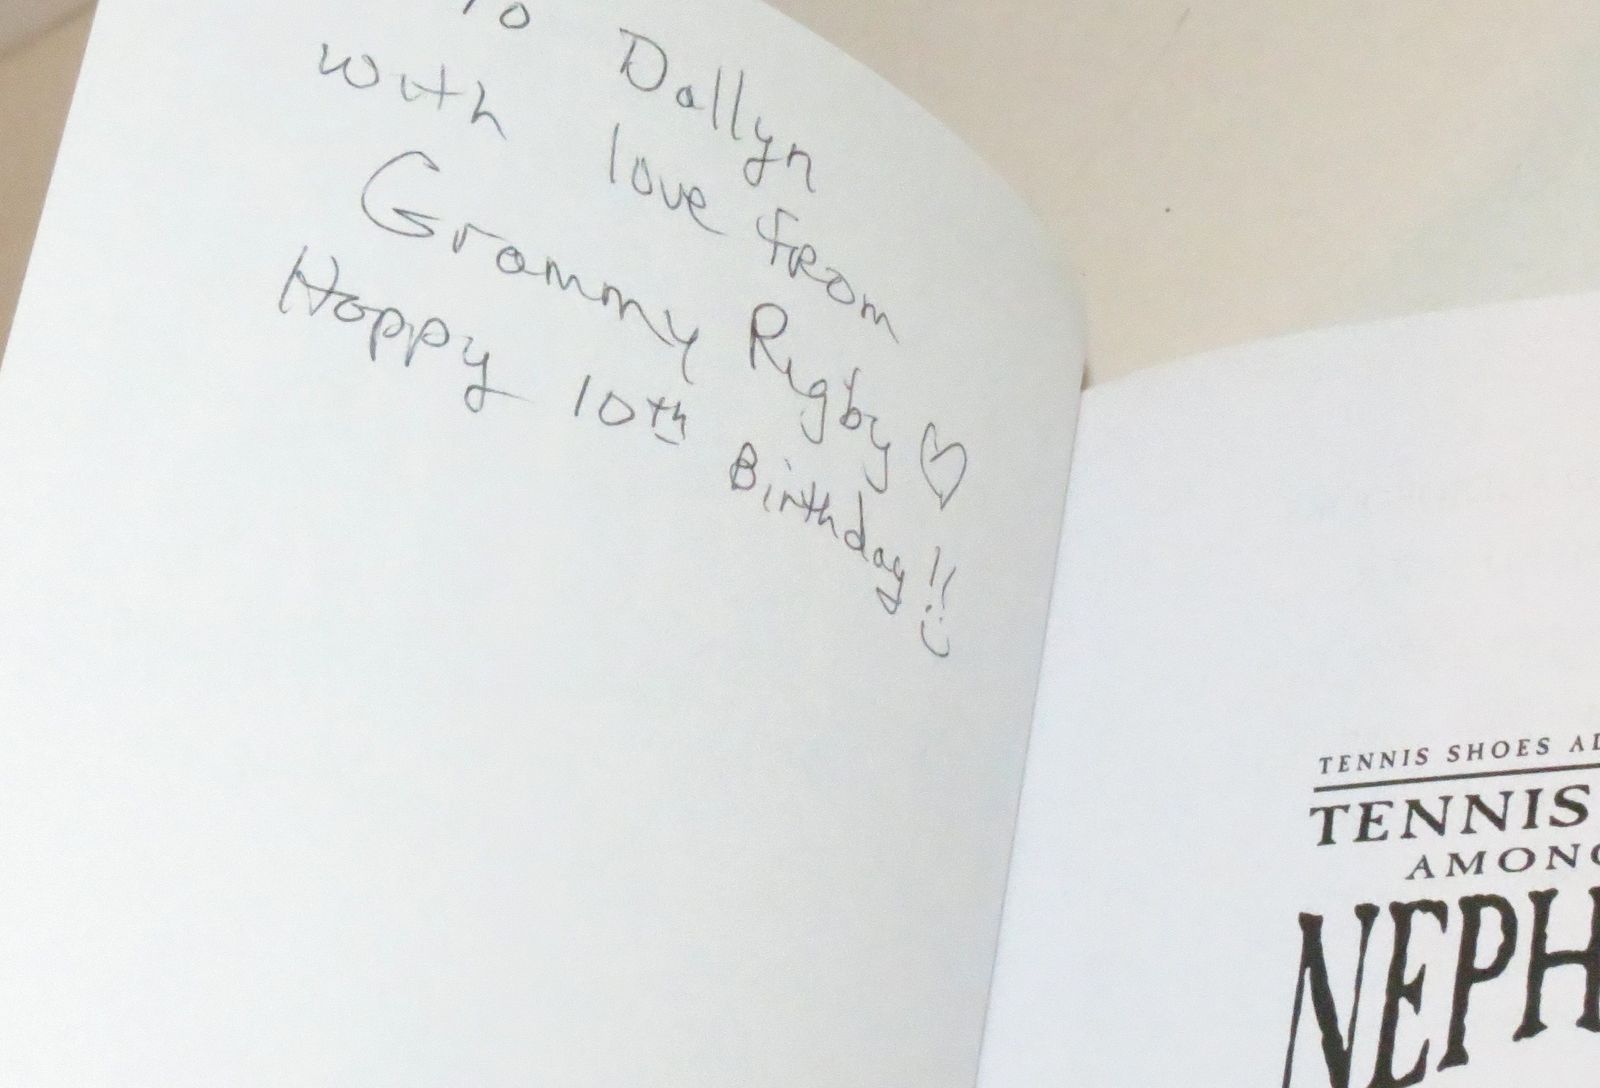 To Dallyn
with love from
Grammy Rigby ♡
Happy 10th Birthday!!
TENNIS SHOES
TENNIS
AMONG
NEPH